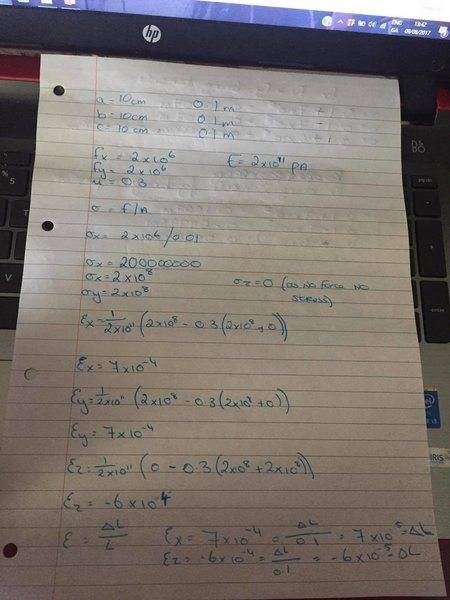 ENG 13:42
GA 09/08/2017
hp
a = 10cm 0.1m
b = 10cm 0.1m
c = 10cm 0.1m
fx = 2x10⁶ E = 2x10¹¹ PA
fy = 2x10⁶
u = 0.3
σ = f/A
σx = 2x10⁶/0.01
σx = 200000000
σx = 2x10⁸ σz = 0 (as no force NO
σy = 2x10⁸ stress)
Ɛx = 1/2x10¹¹ (2x10⁸ - 0.3(2x10⁸ + 0))
Ɛx = 7x10⁻⁴
Ɛy = 1/2x10¹¹ (2x10⁸ - 0.3(2x10⁸ + 0))
Ɛy = 7x10⁻⁴
Ɛz = 1/2x10¹¹ (0 - 0.3(2x10⁸ + 2x10⁸))
Ɛz = -6x10⁻⁴
Ɛ = ΔL/L Ɛx = 7x10⁻⁴ = ΔL/0.1 = 7x10⁻⁵ = ΔL
Ɛz = -6x10⁻⁴ = ΔL/0.1 = -6x10⁻⁵ = ΔL